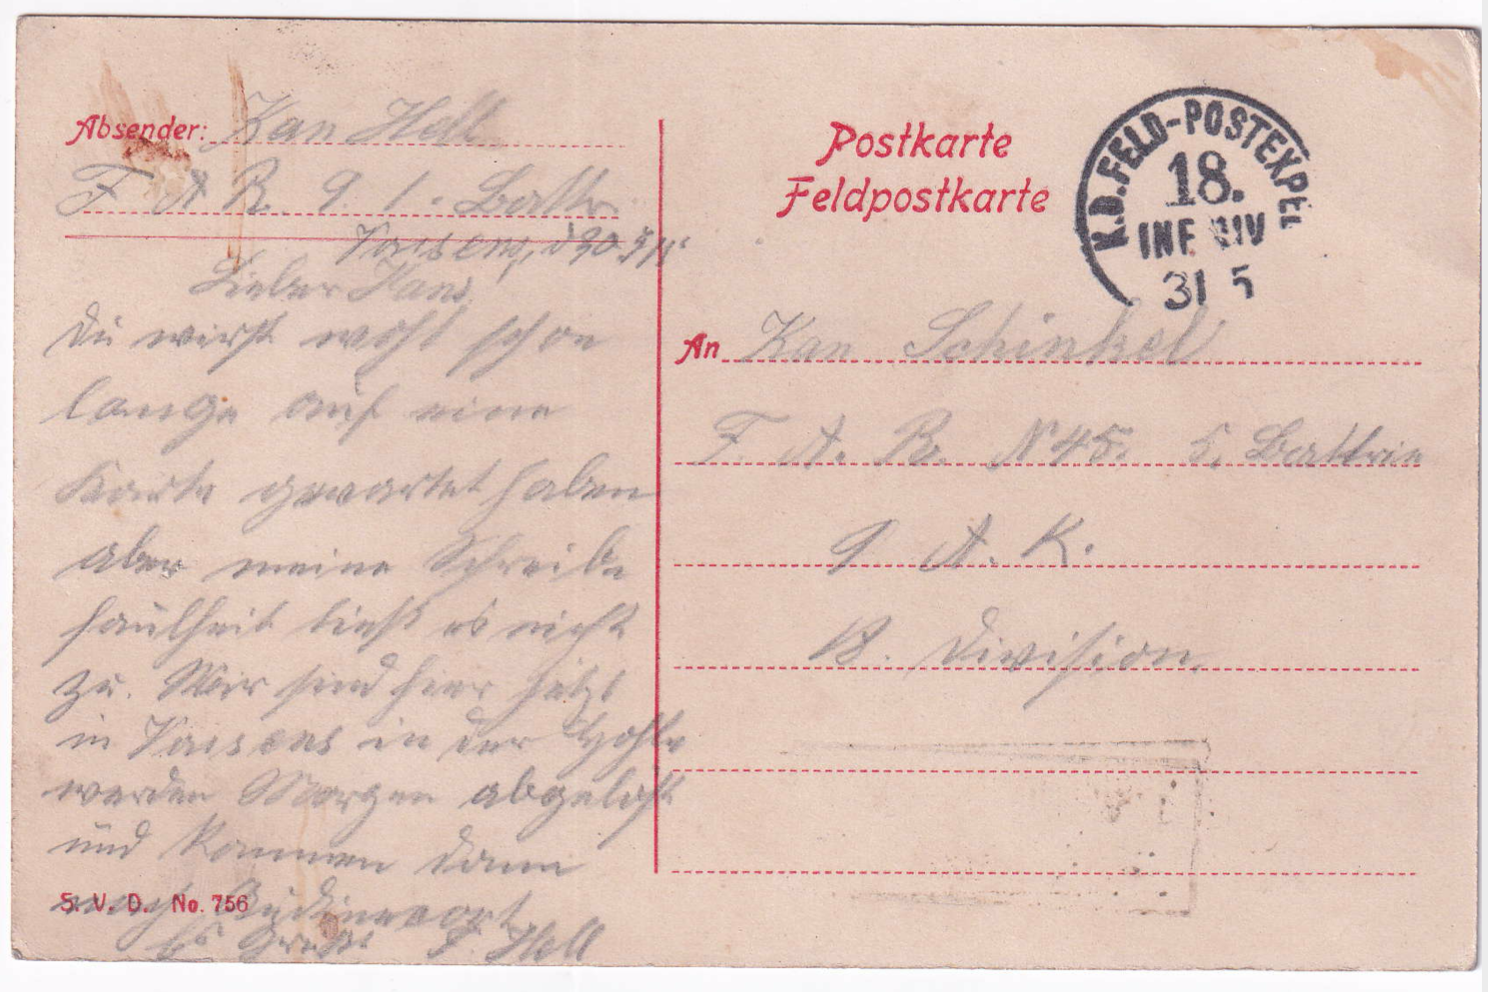 Absender: Kan Hell
F A R. 9 1. Battr.
d 30. 5/15
Lieber Hans!
Du wirst wohl schon
lange auf eine
Karte gewartet haben
aber meine Schreibe
faulheit ließ es nicht
zu. Wir sind hier jetzt
in in der Höhle
werden Morgen abgelößt
und kommen dann
nach
Gruß F. Hell
S. V. D. No. 756
Postkarte
Feldpostkarte
K.D. FELD-POSTEXPED
18.
INF. DIV
31 5
An Kan Schinkel
F. A. R. N 45. 5. Battrie
9 A. K.
18. Division.